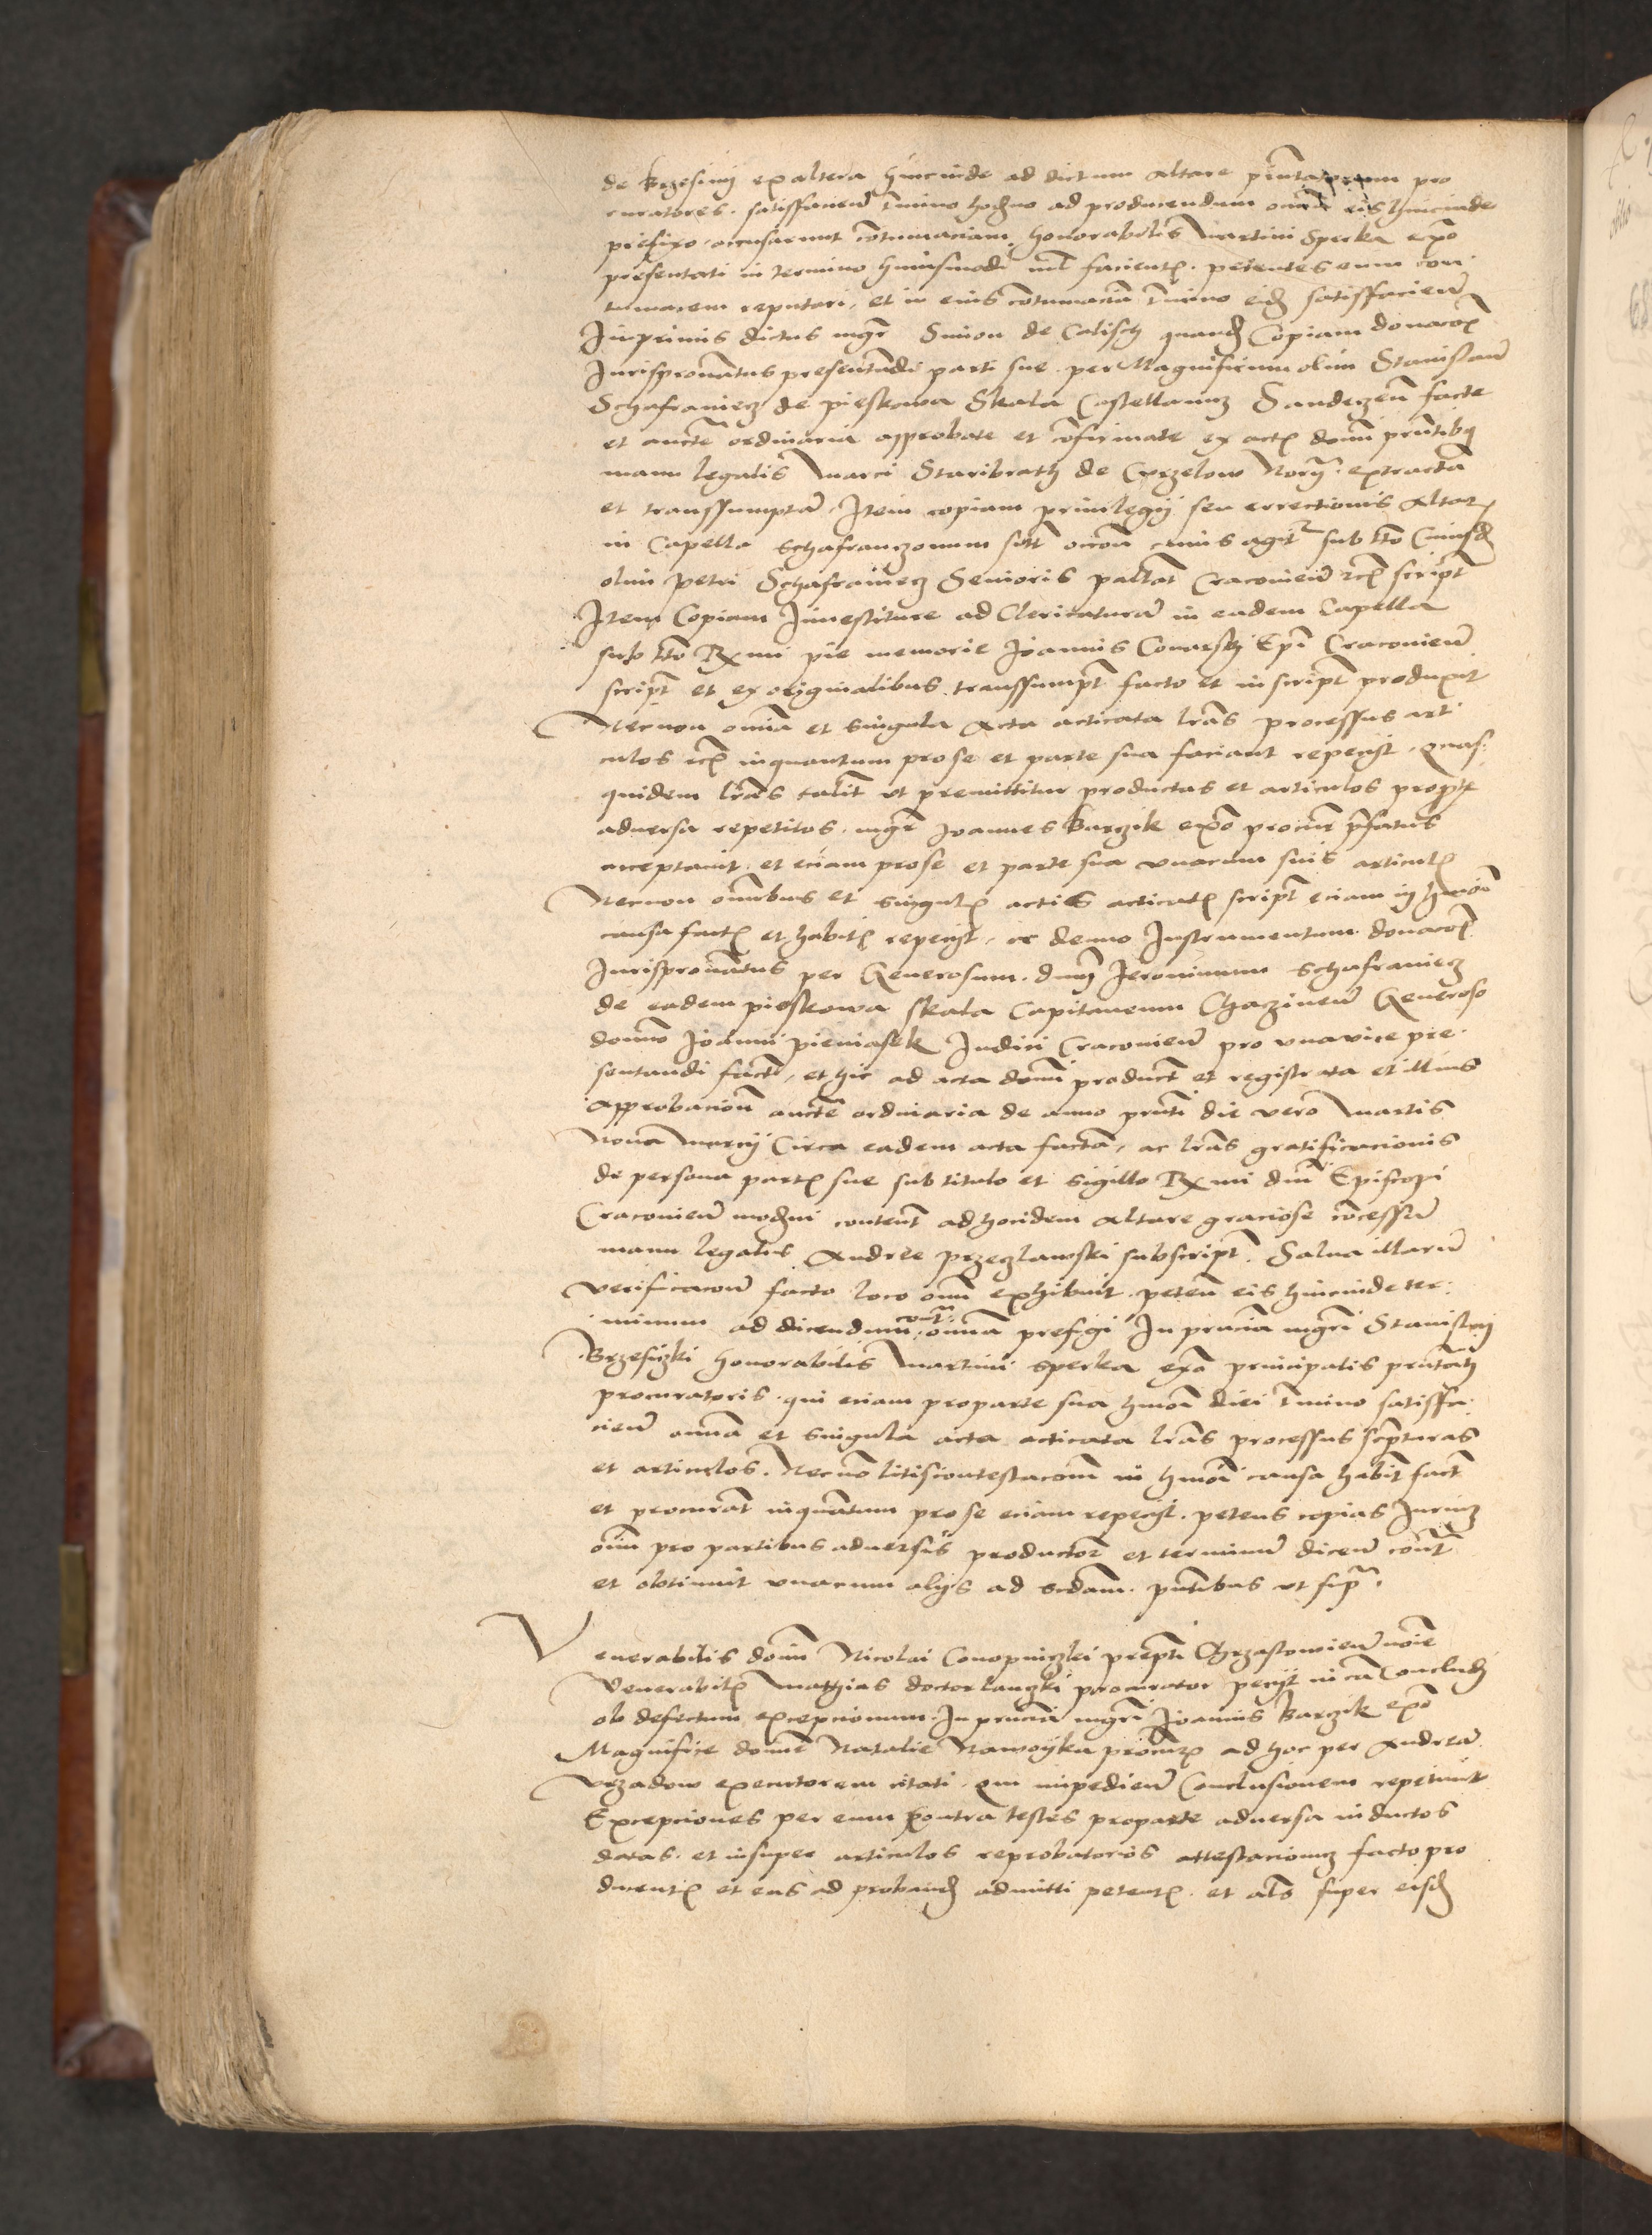 de Brzesiny ex altera hincinde ad dictum altare pntatorum pro
curatores. satisfacien tmino hodno ad producendum omnia eis hincinde
prefixo accusarunt contumaciam honorabilis Martini Sperka expo
presentati in termino huiusmodi nil facient. petentes eum con
tumacem reputari. et in eius contumacia tmino eid satisfacien
Inprimis dictus mgr Simon de Calisch quand Copiam donacois
Jurispronatus presentandi parti sue per Magnificum olim Stanislau
Schafraniecz de pieskowa Skala Castellanum Sandeczen facte
et aucte ordinaria approbate et confirmate ex actis domi pntibus
manu legalis Marci Staribrath de Curzelow Nory extracta
et transsumpta. Item copiam privilegij seu errectionis Altaris
in Capella Schafranczonum sitt occoe cuius agitr sub tto Cuiusd
olim Petri Schafraniecz Senioris pallat Cracovien etc script
Item Copiam Investiture ad Clericatura in eadem Capella
sub tto Rxmi pie memorie Joannis Conarski Epi Cracovien
script et ex originalibus transsumpt facto et in script produxit
Necnon omnia et singula Acta acticata lras processus arti
culos etc inquantum pro se et parte sua faciant repecijt. quas
quidem lras taliter ut premittitur productas et articulos pro pte
adversa repetitos. mgr Joannes Barczik expo procur pfatus
acceptavit et eciam pro se et parte sua unacum suis articulis
Necnon omnibus et singulis actis acticatis script eciam in hmoi
causa factis et habitis repecijt. ac demo Instrumentum donacois
Jurispronatus per Generosum dnm Jeronimum Schafraniecz
de eadem pieskowa skala Capitaneum Chaczinen Generoso
domino Joanni pieniasek Judici Cracovien pro una vice pre
sentandi facti, et hic ad acta domi product et registrata et illius
Approbacion aucte ordinaria de anno pnti die vero Martis
Nona Marcij Circa eadem acta facta, ac lras gratificacionis
de persona partis sue sub titulo et sigillo Rxmi dni Episcopi
Cracovien moderni content ad hocidem altare graciose concessu
manu legalis Andree Przeczlawski subscript. Salva illaru
verificacoe facto loco omni exhibuit. peten eis hincinde ter
minum ad dicendum cont omnia prefigi In pncia mgri Stanislai
Brzesiczki honorabilis Martini Sperka expo principalis pntati
procuratoris. qui eciam pro parte sua hmoi diei tmino satisfa
cien omnia et singula acta acticata lras processus scripturas
et articulos. Necno litiscontestacoem in hmoi causa habit fact
et procurat inquantum pro se eciam repecijt. petens copias Jurium
oim pro partibus adversis productor et terminu dicen cont
et obtinuit unacum alijs ad scdam. pntibus ut supra.

Venerabilis domi Nicolai Conopniczki prepti Chrzastowien noie
Venerabilis Mathias doctor lanczki procurator pecijt in ca Concludi
ob defectum excepcionum. In pncia mgri Joannis Barczik expo
Magnifice domine Natalie Nawoijka procuris ad hoc per Andrea
Urzadow executorem citati. qui impedien Conclusionem repetivit
Excepciones per eum contra testes pro parte adversa inductos
datas. et insuper articulos reprobatorios attestacionum facto pro
ducentis et eas ad proband admitti petentis. et als super eisd